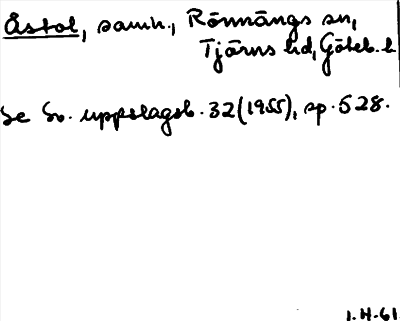 Åstol, samh., Rönnängs sn,
Tjörns hd, Göteb. l.
Se Sv. uppslagsb. 32 (1955), sp. 528.
1.H.61